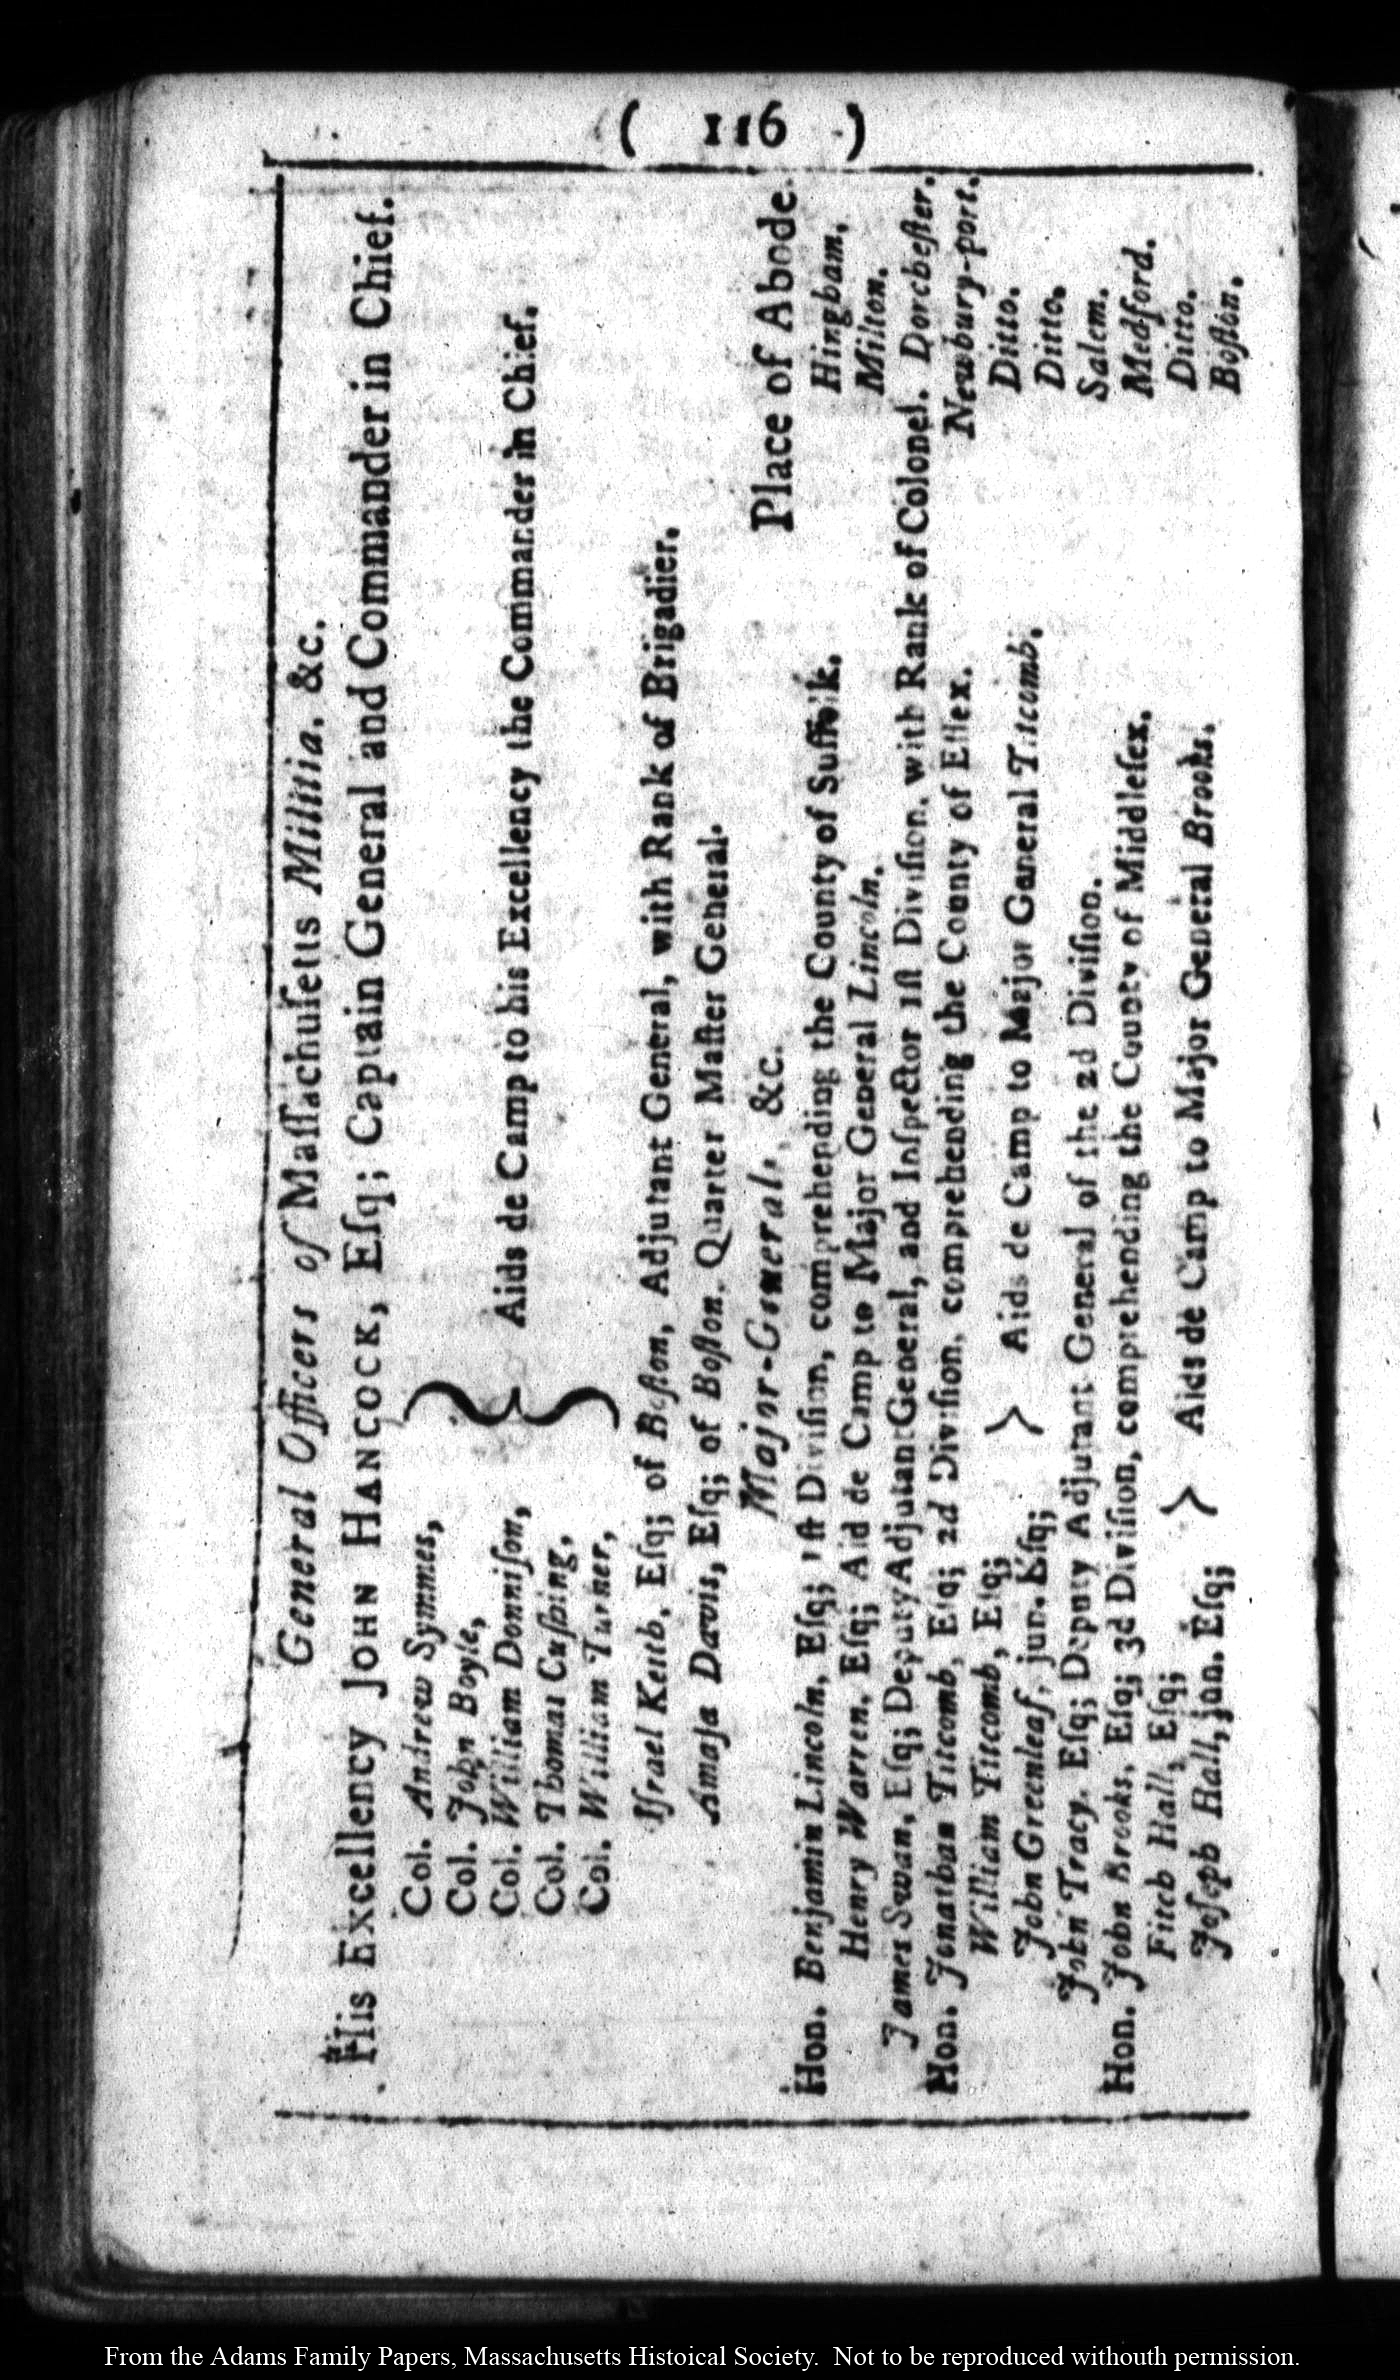 ( 116 )
General Officers of Maſſachuſetts Militia, &c.
His Excellency JOHN HANCOCK, Eſq; Captain General and Commander in Chief.
Col. Andrew Symmes,
Col. John Boyle,
Col. William Donniſon,
Col. Thomas Cuſhing,
Col. William Turner,
} Aids de Camp to his Excellency the Commander in Chief.
Iſrael Keith, Eſq; of Boſton, Adjutant General, with Rank of Brigadier.
Amaſa Davis, Eſq; of Boſton, Quarter Maſter General.
Major-Generals, &c. Place of Abode.
Hon. Benjamin Lincoln, Eſq; 1ſt Diviſion, comprehending the County of Suffolk. Hingham.
Henry Warren, Eſq; Aid de Camp to Major General Lincoln. Milton.
James Swan, Eſq; Deputy Adjutant General, and Inſpector 1ſt Diviſion, with Rank of Colonel. Dorcheſter.
Hon. Jonathan Titcomb, Eſq; 2d Diviſion, comprehending the County of Eſſex. Newbury-port.
William Titcomb, Eſq; Ditto.
John Greenleaf, jun. Eſq; } Aids de Camp to Major General Titcomb. Ditto.
John Tracy, Eſq; Deputy Adjutant General of the 2d Diviſion. Salem.
Hon. John Brooks, Eſq; 3d Diviſion, comprehending the County of Middleſex. Medford.
Fitch Hall, Eſq; Ditto.
Joſeph Hall, jun. Eſq; } Aids de Camp to Major General Brooks. Boſton.
From the Adams Family Papers, Massachusetts Histoical Society. Not to be reproduced withouth permission.